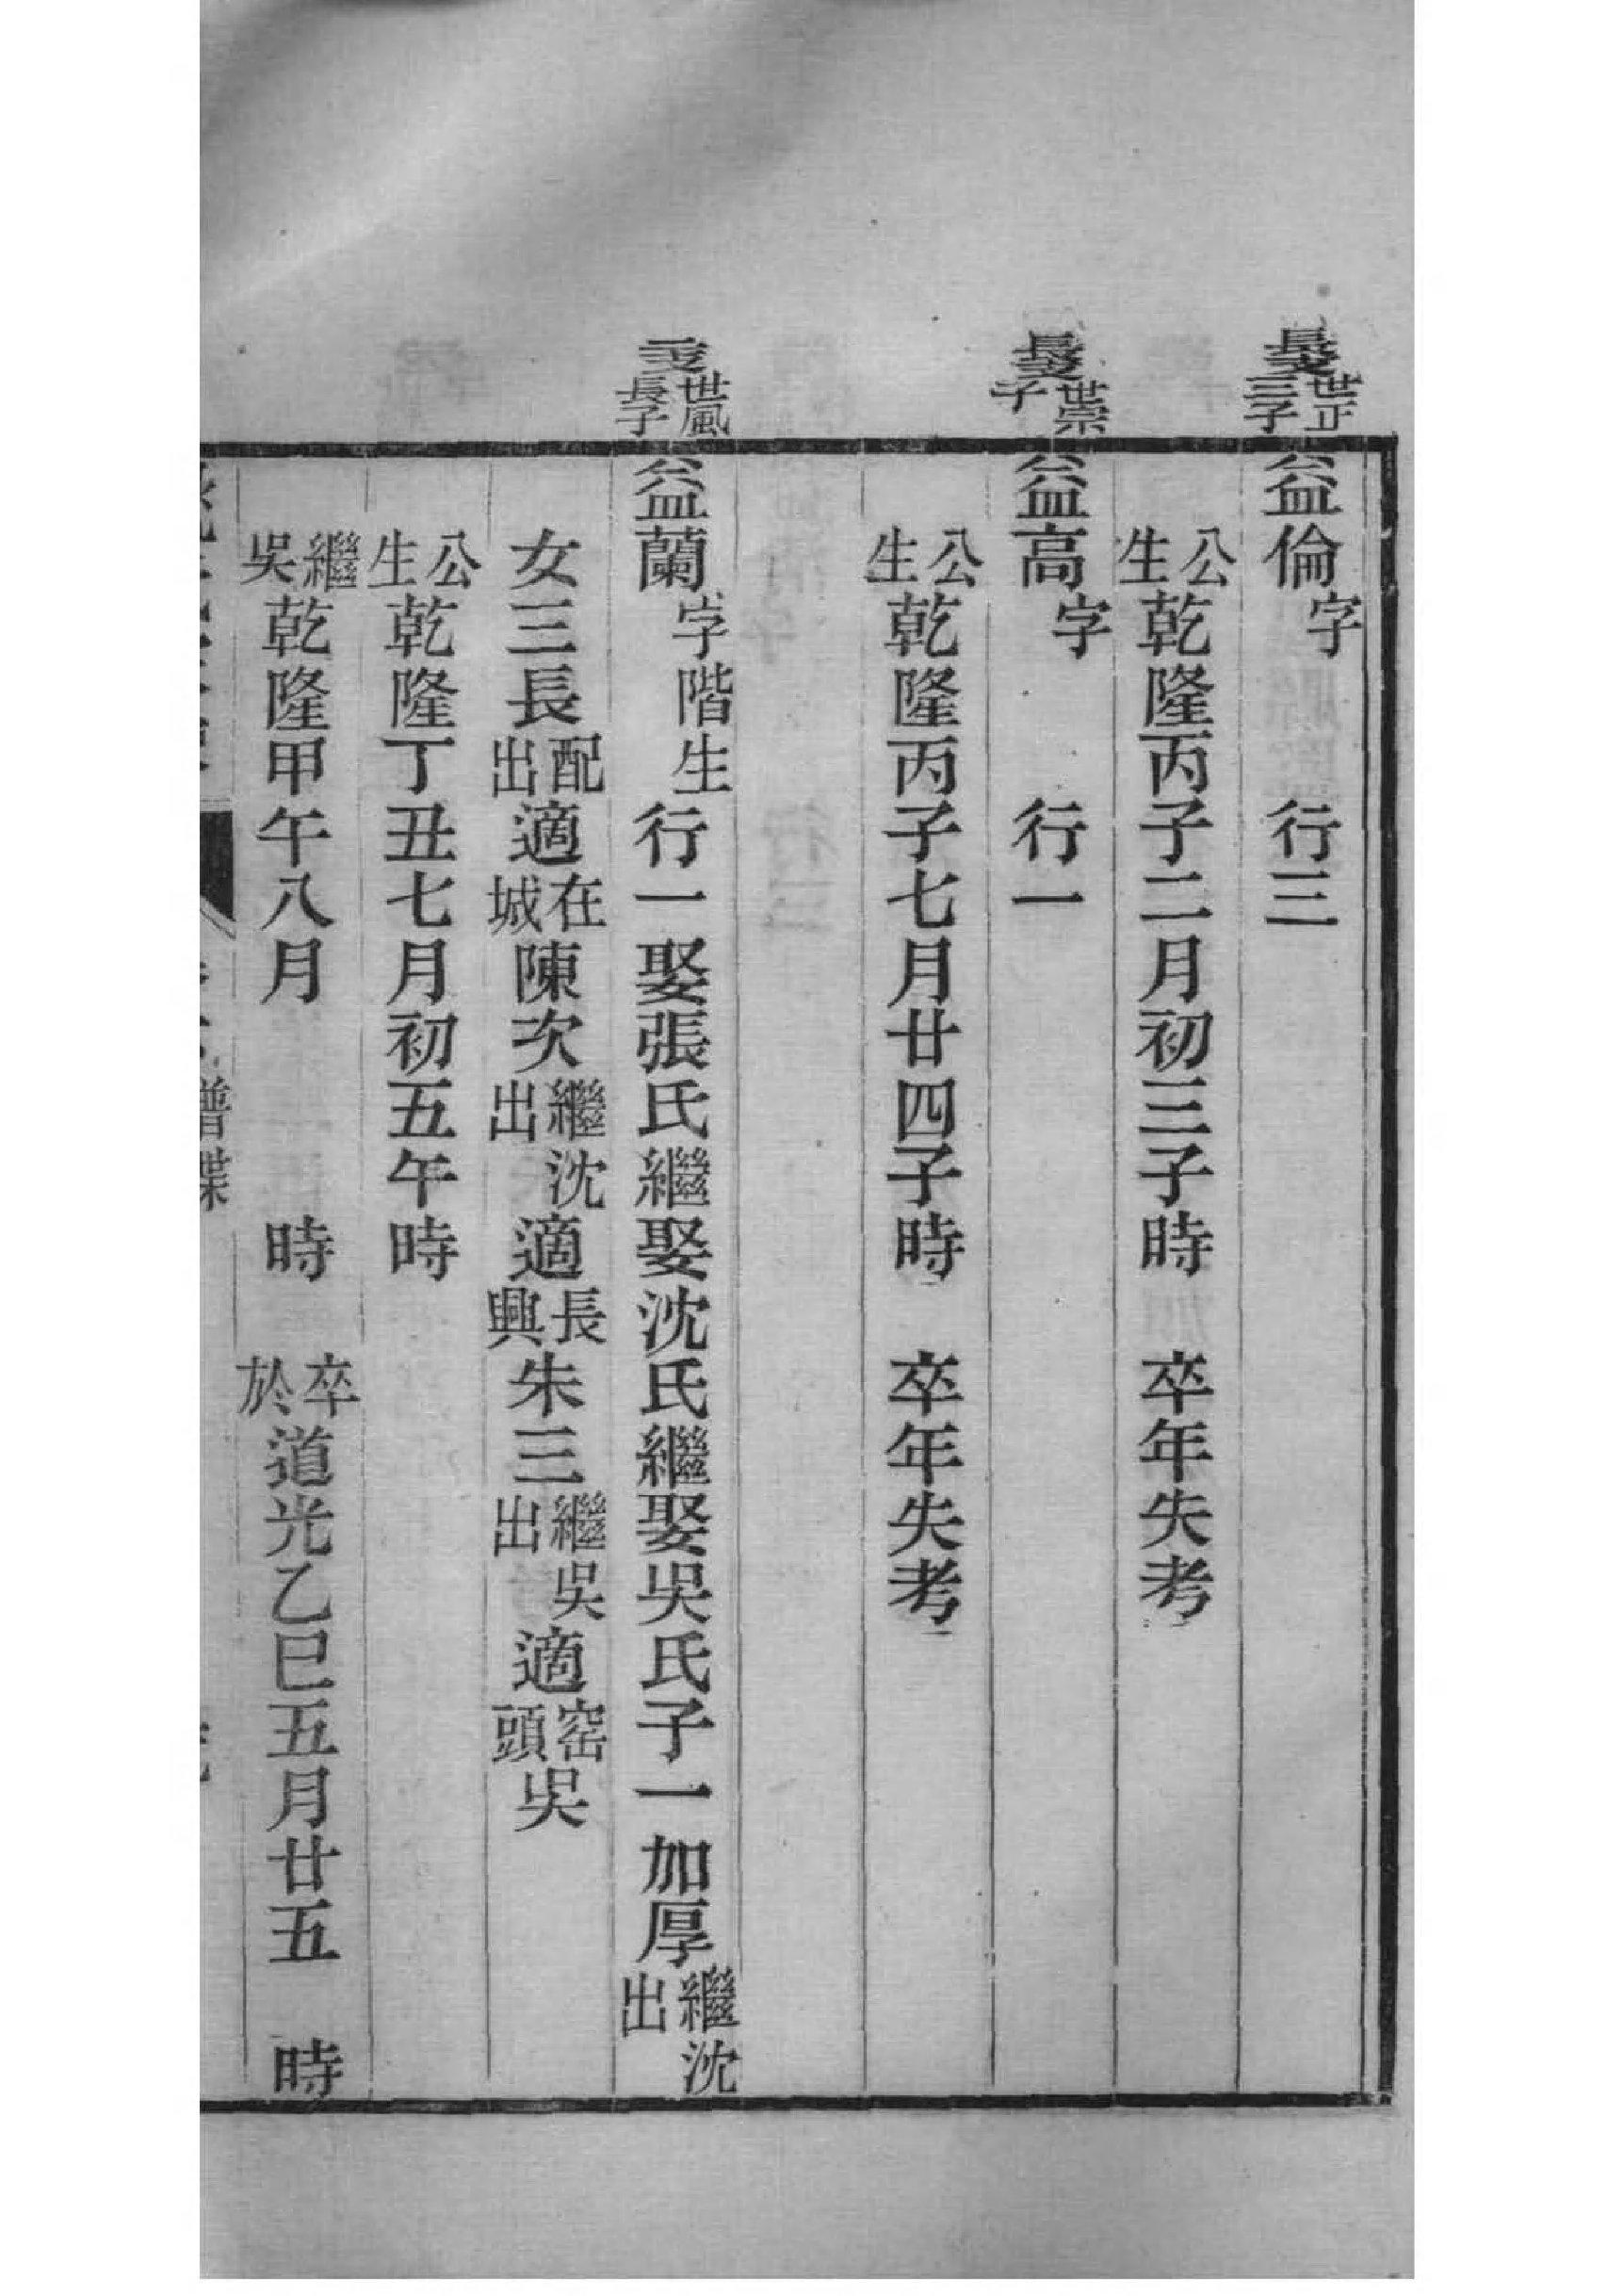 長支世正三子
益倫字　行三
公生乾隆丙子二月初三子時　卒年失考
長支世崇子
益高字　行一
公生乾隆丙子七月廿四子時　卒年失考
二支世風長子
益蘭字階生行一娶張氏繼娶沈氏繼娶吳氏子一加厚繼沈出
女三長配出適在城陳次繼沈出適長興朱三繼吳出適窑頭吳
公生乾隆丁丑七月初五午時
繼吳乾隆甲午八月　時　卒於道光乙巳五月廿五　時
譜牒